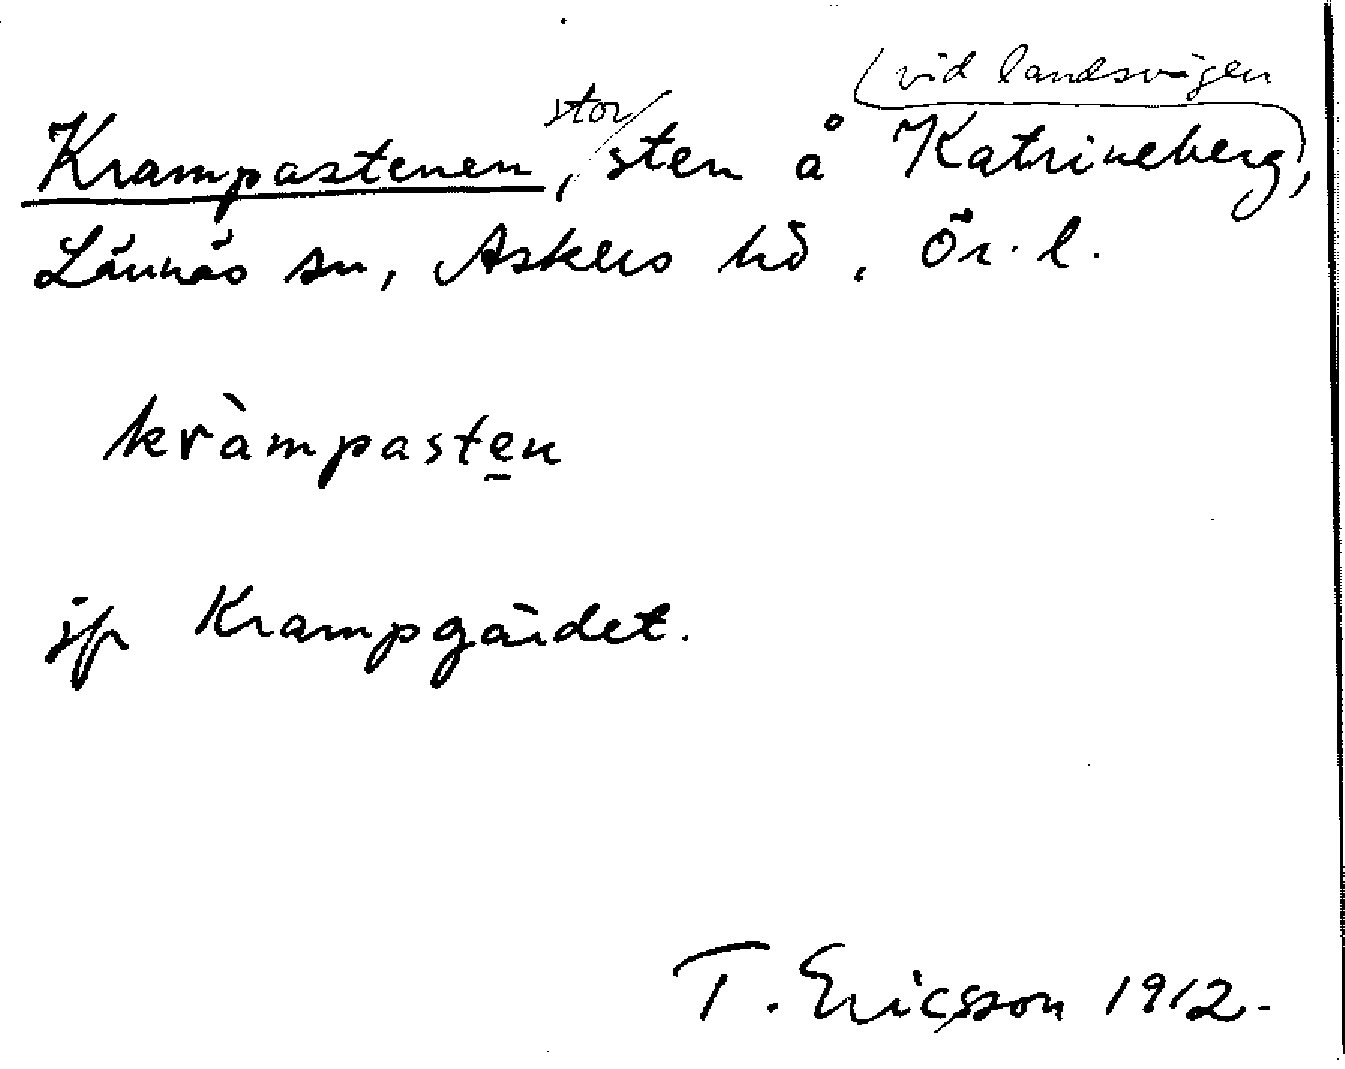 Krampastenen, stor sten å Katrineberg, vid landsvägen
Lännäs sn, Askers hd, Ör. l.
kràmpasten
jfr Krampgärdet.
T. Ericsson 1912.